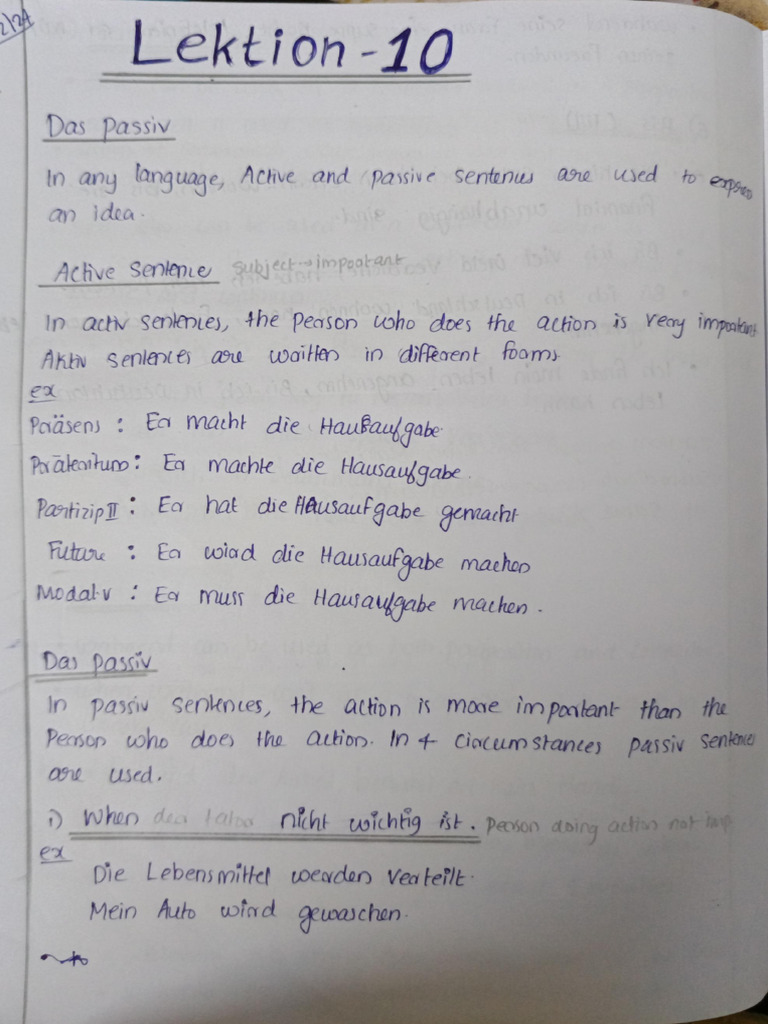 2/24
Lektion - 10
Das Passiv
In any language, Active and passive sentences are used to express
an idea.
Active Sentence subject → important
In activ sentences, the person who does the action is very important
Aktiv sentences are written in different forms
ex
Präsens : Er macht die Hausaufgabe.
Präteritum : Er machte die Hausaufgabe.
Partizip II : Er hat die Hausaufgabe gemacht
Future : Er wird die Hausaufgabe machen
Modal-v : Er muss die Hausaufgabe machen.
Das Passiv
In passiv sentences, the action is more important than the
Person who does the action. In 4 circumstances passiv sentences
are used.
i) When der Tator nicht wichtig ist. Person doing action not imp
ex
Die Lebensmittel werden verteilt.
Mein Auto wird gewaschen.